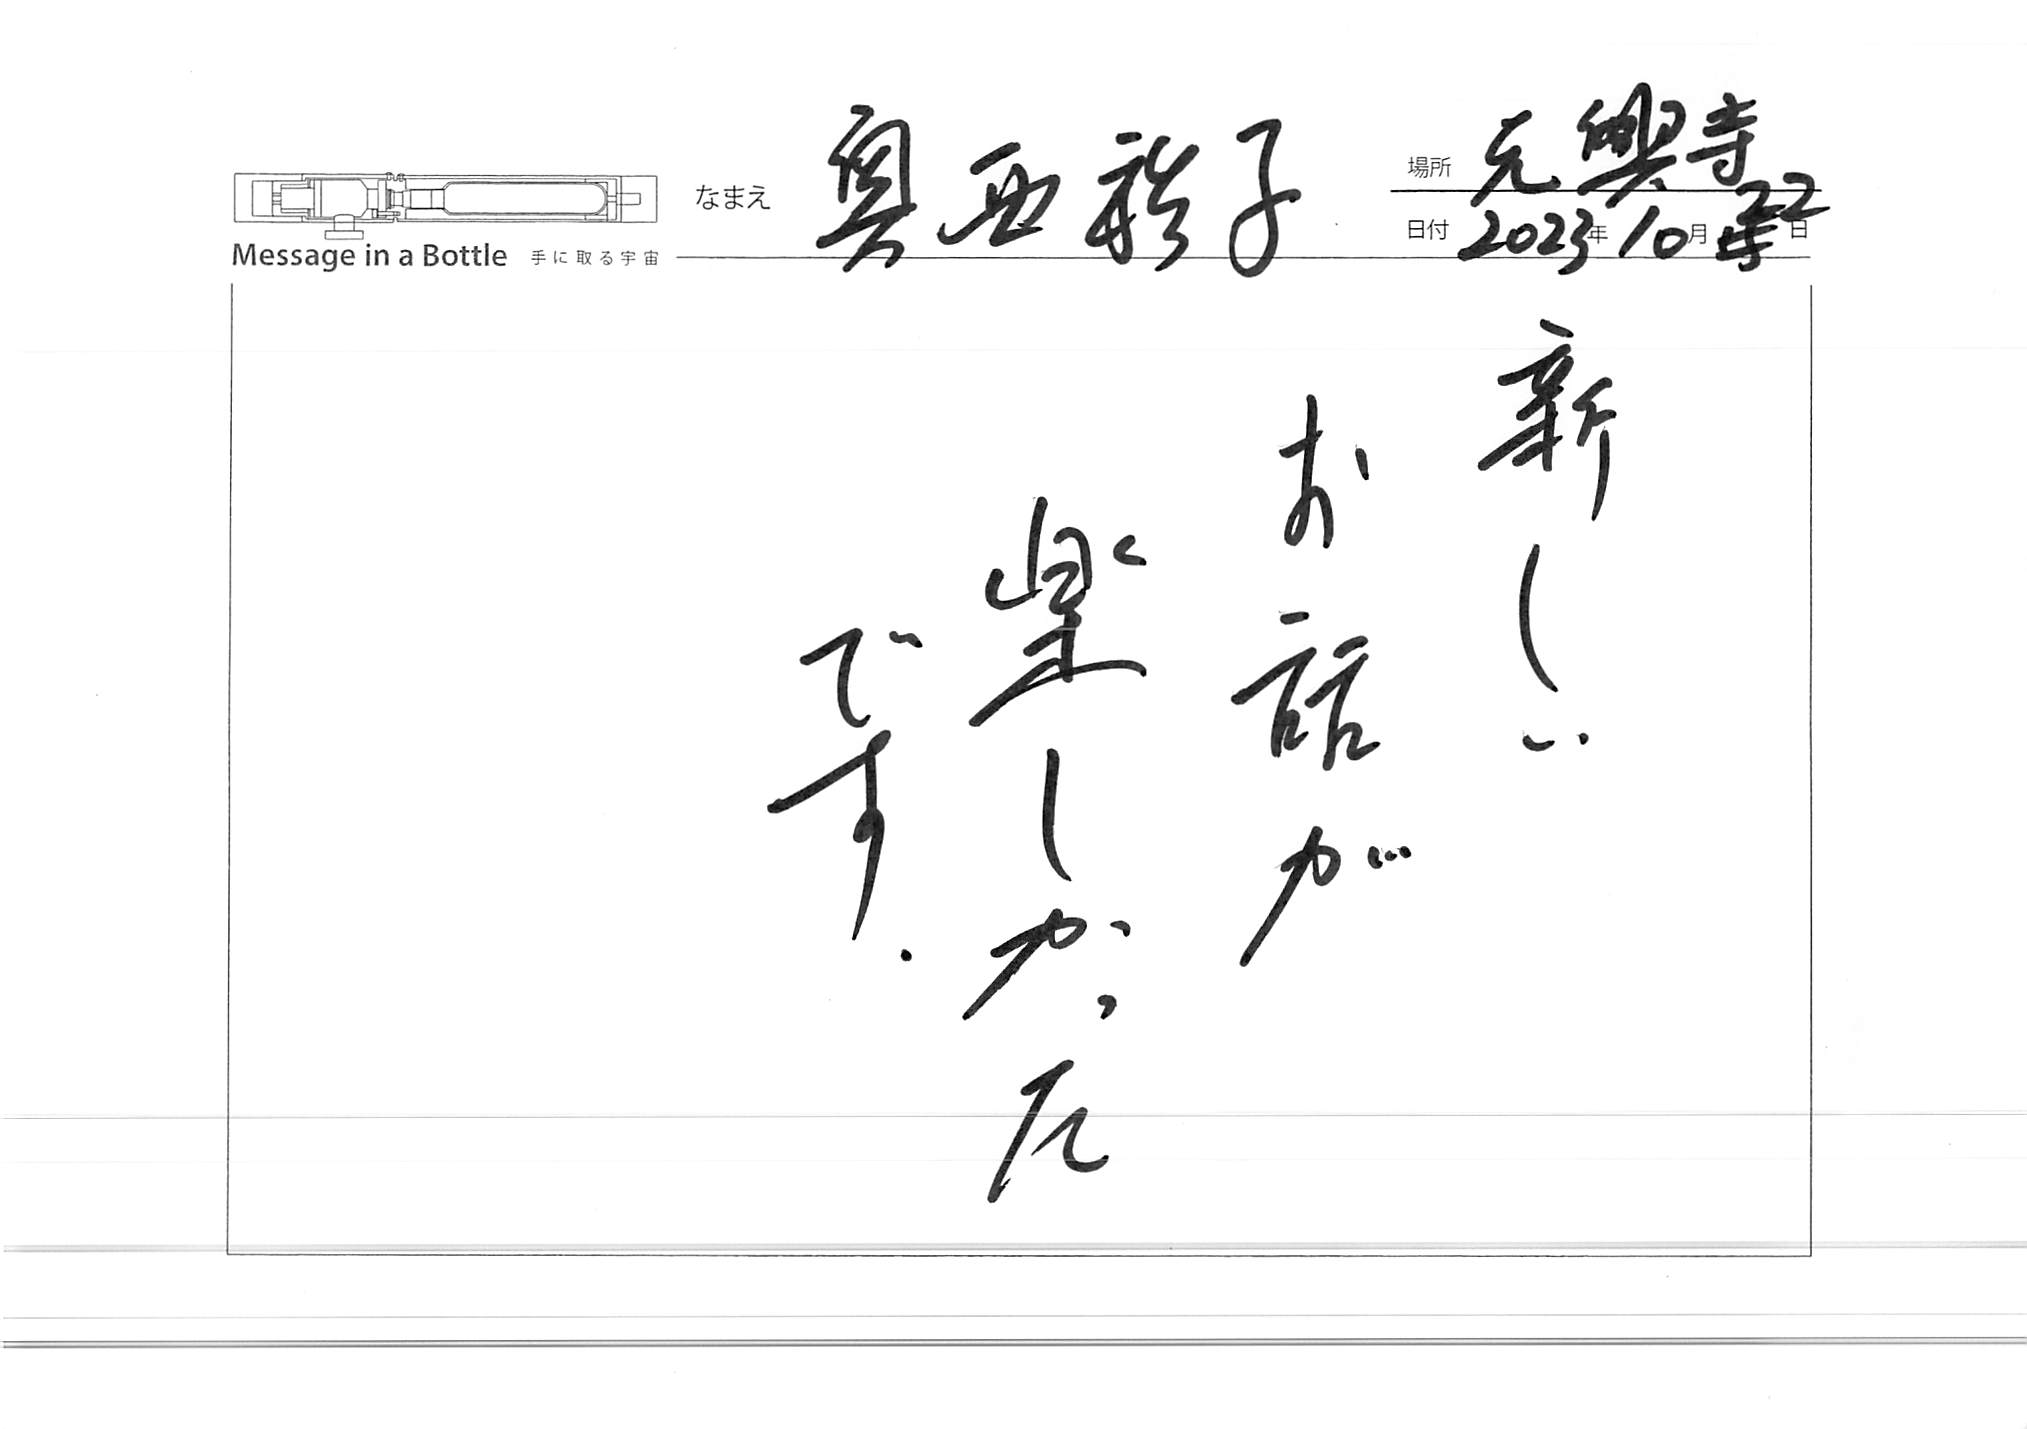 Message in a Bottle 手に取る宇宙
なまえ 奥西 子
場所 元興寺
日付 2023年10月22日
新しい
お話が
楽しかった
です.